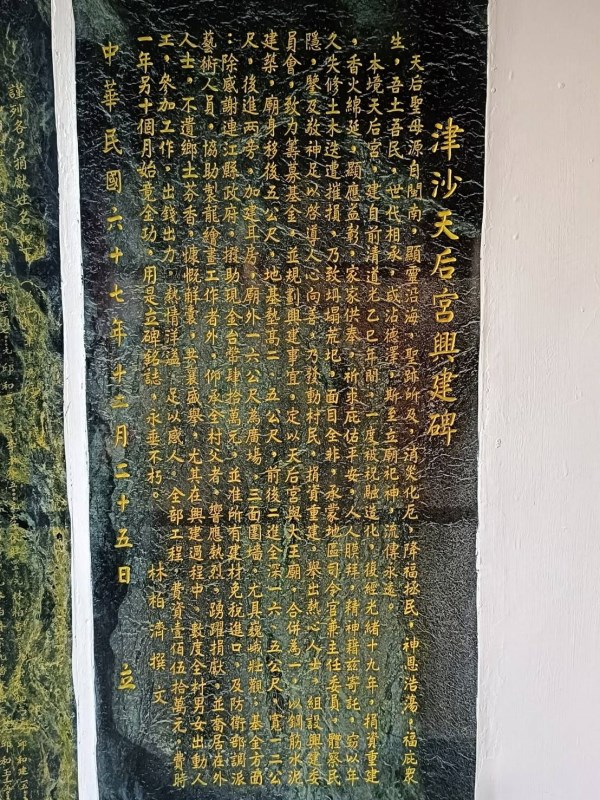 津沙天后宮興建碑
天后聖母源自閩南，顯靈沿海，聖跡所及，消災化厄，降福拯民，神恩浩蕩，福庇衆
生，吾土吾民，世代相承，咸沾德澤，斯至立廟祀神，流傳永遠。
本境天后宮，建自前清道光乙巳年間，一度被祝融造化，復經光緒十九年，捐資重建
，香火綿延，顯應益彰，家家供奉，祈求庇佑平安，人人膜拜，精神藉茲寄託，窃以年
久失修土木迭遭摧損，乃致坍塌荒圮，面目全非，永蒙地區司令官兼主任委員，體察民
隱，鑒及敬神足以啓導人心向善，乃發動村民，捐資重建，舉出熱心人士，組設興建委
員會，致力籌募基金，並規劃興建事宜，定以天后宮與大王廟，合併為一，以鋼筋水泥
建築，廟身移後五公尺，地基墊高二．五公尺，前後二進全深一六．五公尺，寬一二公
尺，後進兩旁，加建耳房，廟外一六公尺為廣場，三面圍墻，尤具巍峨壯觀；基金方面
：除感謝連江縣政府，撥助現金台幣肆拾萬元，並准所有建材免稅進口，及防衛部調派
藝術人員，協助製龍繪畫工作者外，仰承全村父老，響應熱烈，踴躍捐獻，並喬居在外
人士，不遺鄉土芬香，慷慨解囊，共襄盛舉，尤其在興建過程中，數度全村男女出動人
工，參加工作，出錢出力，熱情洋溢，足以感人，全部工程，費資壹佰伍拾萬元，費時
一年另十個月始竟全功，用是立碑銘誌，永垂不朽。
林柏濟撰文
中華民國六十七年十二月二十五日 立
謹列各戶捐獻姓名